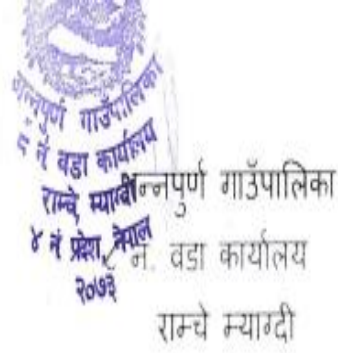 अन्नपुर्ण गाउँपालिका
८ नं वडा कार्यालय
राम्चे म्याग्दी
४ नं प्रदेश, नेपाल
२०७३
अन्नपुर्ण गाउँपालिका
८ नं. वडा कार्यालय
राम्चे म्याग्दी